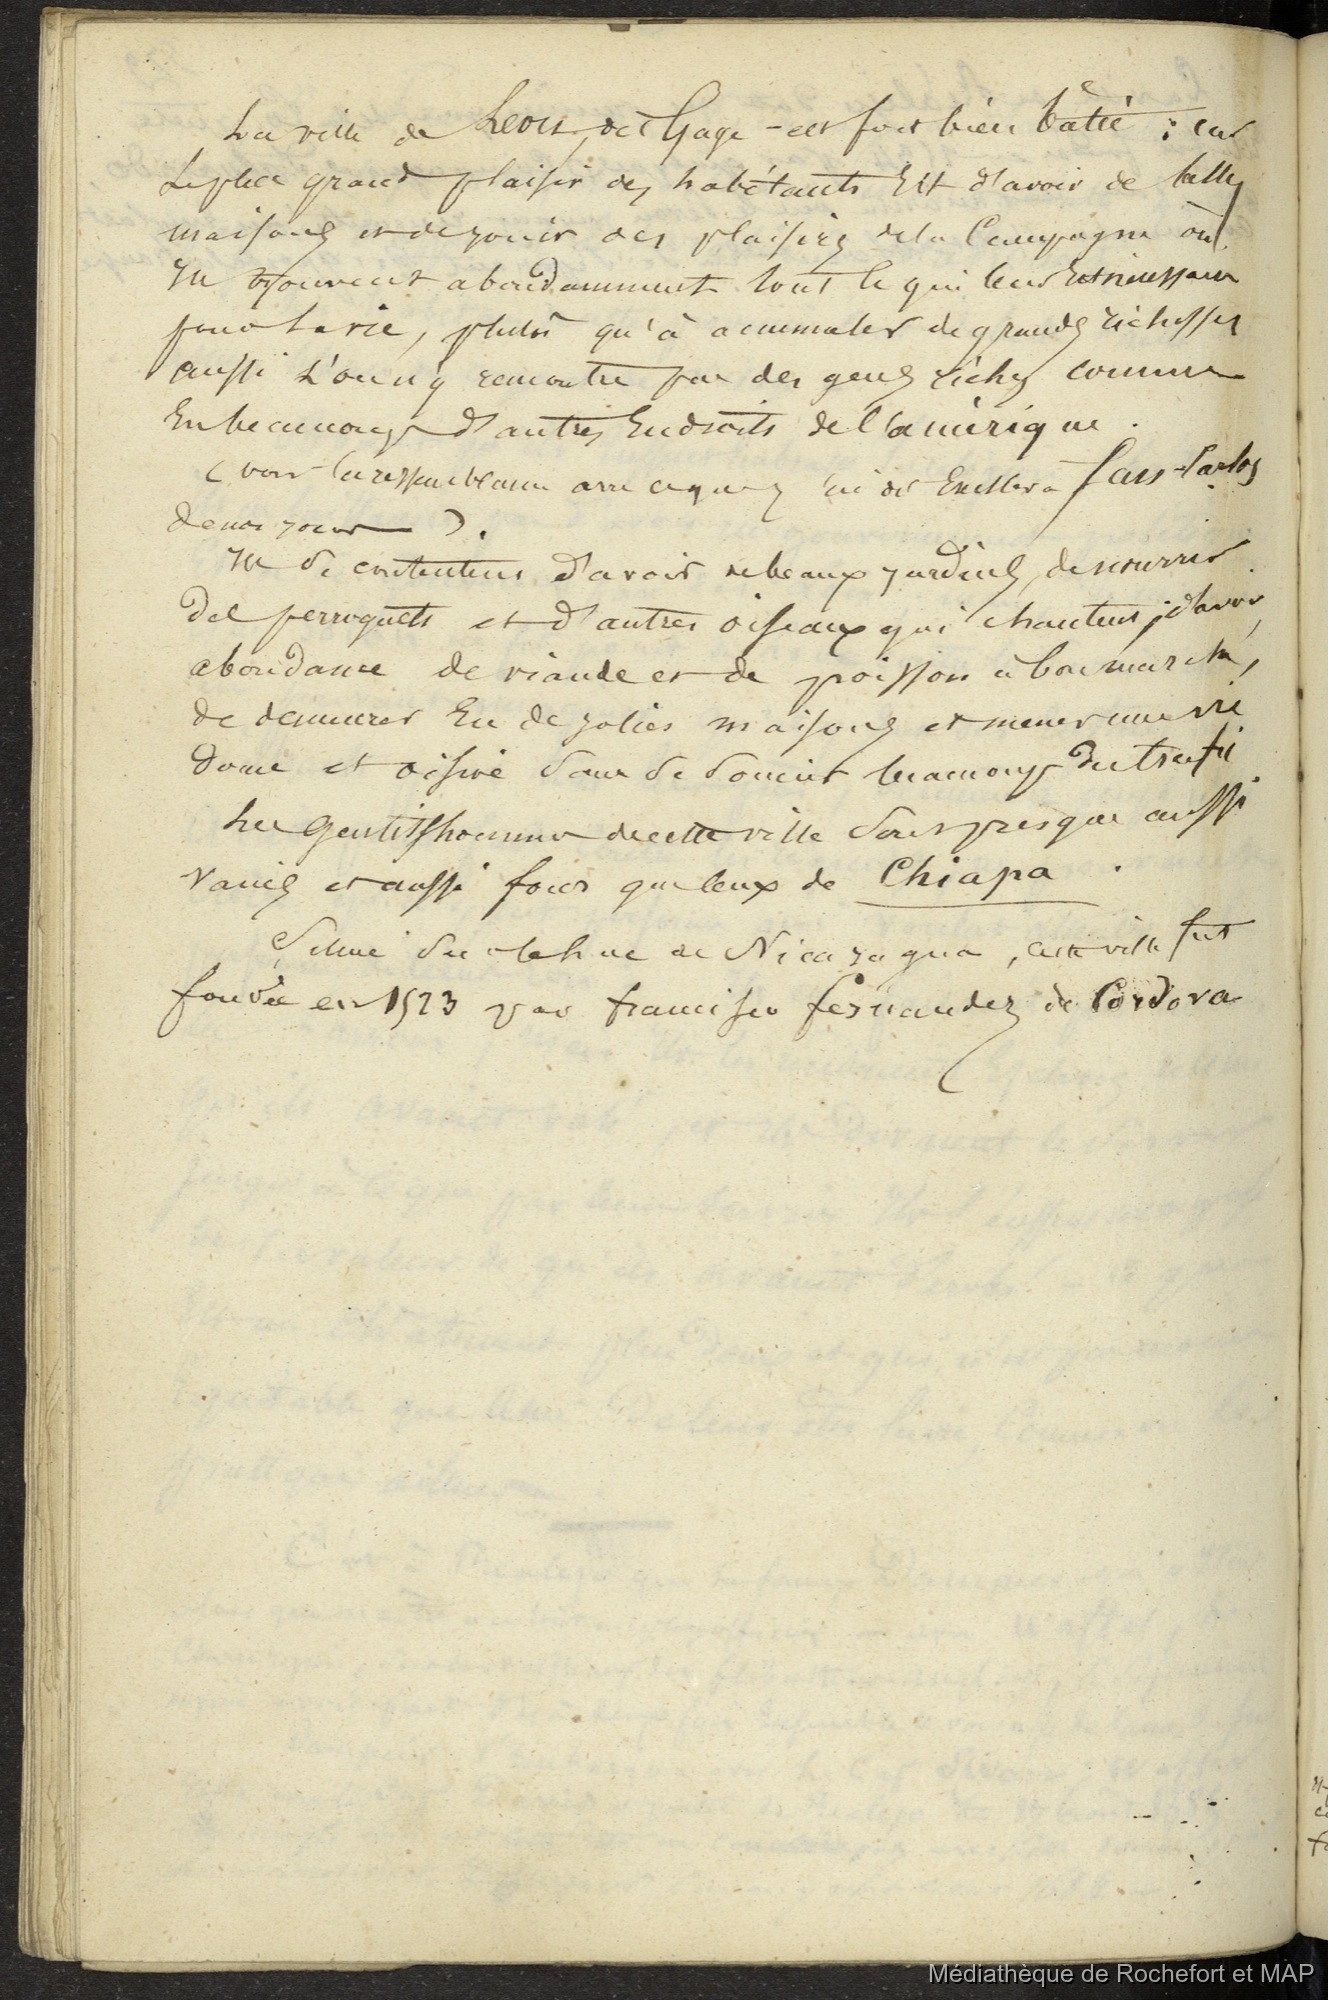 La ville de Leon, dit Gage - est fort bien batie : car
le plus grand plaisir des habétants Est d'avoir de belles
maisons et de jouir des plaisirs de la Campagne où
Ils trouvent abondamment tout ce qui leur Est nécessaire
pour la vie, plutôt qu'à accumuler de grandes richesses
aussi l'on n'y rencontre pas des gens riches comme
En beaucoup d'autres Endroits de l'amérique.
(voir la ressemblance avec ce que j'ai dit San-Carlos
de nos jours).
Ils se contentent d'avoir de beaux jardins, de nourrir
des perroquets et d'autres oiseaux qui chantent, d'avoir
abondance de viande et de poisson à bon marché,
de demeurer En de jolies maisons et mener une vie
douce et oisive sans se soucier beaucoup du trafic
Les Gentilshommes de cette ville sont presque aussi
vains et aussi fous que ceux de Chiapa.
Située sur le lac de Nicaragua, cette ville fut
fondée en 1523 par francisco fernandez de Cordova
Médiathèque de Rochefort et MAP